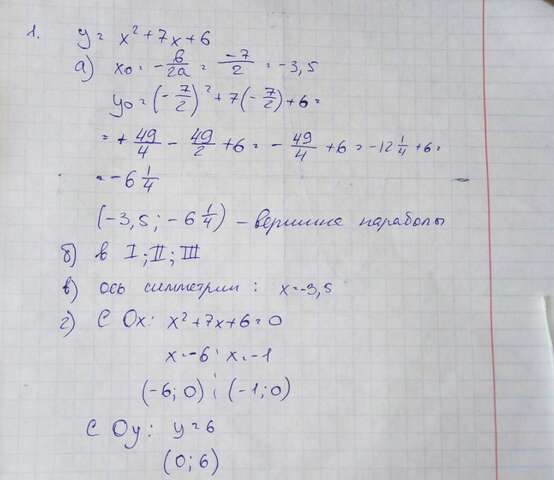 1. y = x² + 7x + 6
а) x₀ = -b/2a = -7/2 = -3,5
y₀ = (-7/2)² + 7(-7/2) + 6 =
= + 49/4 - 49/2 + 6 = - 49/4 + 6 = -12 1/4 + 6 =
= -6 1/4
(-3,5; -6 1/4) - вершина параболы
б) в I; II; III
в) ось симметрии: x = -3,5
г) С Ox: x² + 7x + 6 = 0
x = -6 ; x = -1
(-6; 0) ; (-1; 0)
С Oy: y = 6
(0; 6)